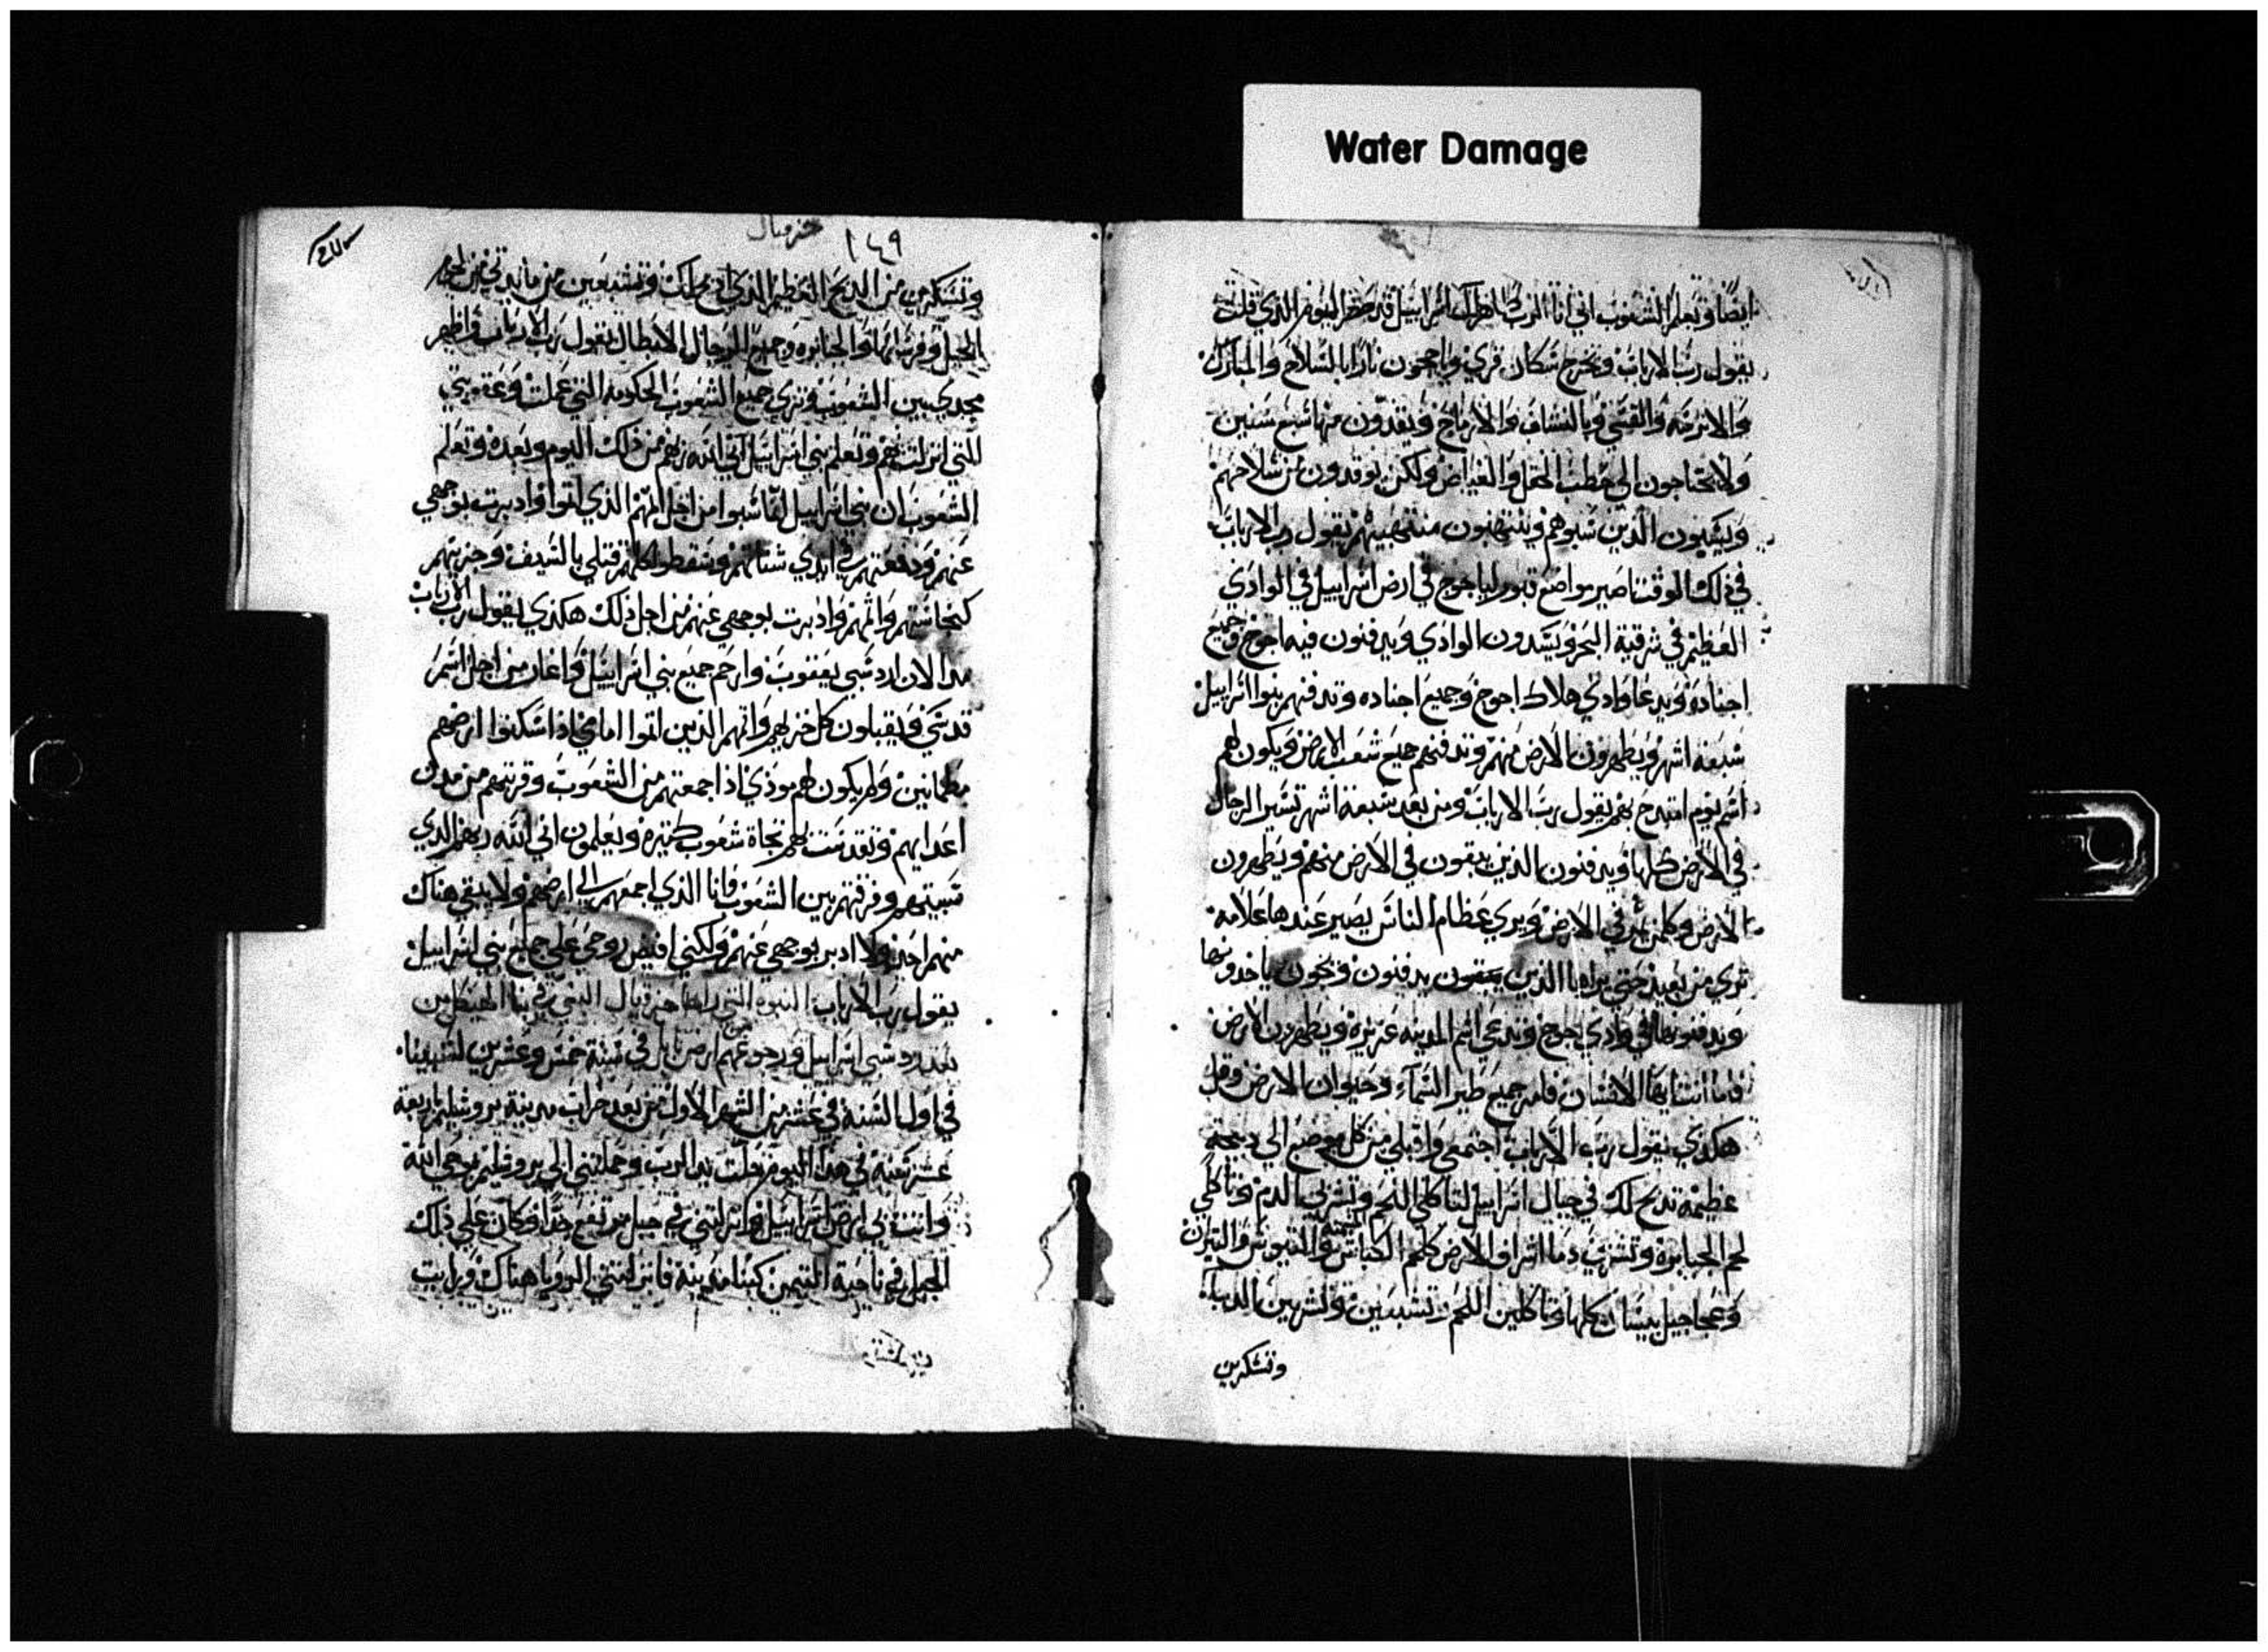 Water Damage
ايضًا وتعلم الشعوب اني انا الرب اسرائيل قد حضر اليوم الذي قلت
يقول رب الارباب وتخرج سكان قري وياججون نارًا بالسلاح والمبازك
والاترسه والقسي وبالنشاف والارماح ويقدون منها سبع سنين
ولا يحتاجون الي حطب الحقل والغياض ولكن يوقدون من سلاحهم
ويسبون الذين سبوهم وينتهبون منتهبيهم يقول رب الارباب
في ذلك الوقت اصير مواضع قبور لياجوج في ارض اسراييل في الوادي
العظيم في شرقية البحر ويسدون الوادي ويدفنون فيه اجوج وجميع
اجناده ويدعا وادي هلاك اجوج وجميع اجناده وتدفنهم بنوا اسراييل
سبعه اشهر ويطهرون الارض منهم وتدفنهم جميع شعب الارض ويكون لهم
اسم يوم امتدح بهم يقول رب الارباب ومن بعد سبعة اشهر تسير الرجال
في الارض كلها ويدفنون الذين يبقون في الارض منهم ويطهرون
الارض وكلمن يمر في الارض ويري عظام الناس يصير عندها علامه
تري من بعيد حتي يراها الذين يبقون يدفنون ويجون ياخدونها
ويدفنونها في وادي اجوج وتدعي اسم المدينه عزيزة ويطهرون الارض
فاما انت ايها الانسان فامر جميع طير السماء وحيوان الارض وقل
هكذي يقول رب الارباب اجتمعي واقبلي من كل موضع الي دبيحة
عظيمة تدبح لك في جبال اسراييل لتاكلي اللحم وتشربي الدم وتاكلي
لحم الجبابرة وتشرب دما اشراف الارض كلهم الكباش المسمنه والتيوس والتيران
وعجاجيل بيسان كلها وتاكلين اللحم وتشبعين وتشربين الدماء
وتسكرين
١٤٩
حزقيال
وتسكرين من الدبح العظيم الذي ادبح لك وتشبعين من مايدتي من لحوم
الخيل وفرسانها والجبابره وجميع الرجال الابطال يقول رب الارباب واظهر
مجدي بين الشعوب وتري جميع الشعوب الحكومه التي عملت وعقوبتي
التي انزلت بهم وتعلم بني اسراييل اني الله ربهم من ذلك اليوم وبعده وتعلم
الشعوب ان بني اسراييل انما سبوا من اجل اتمهم الذي اتوا وادبرت بوجهي
عنهم ودفعتهم في ايدي شناتهم وسقطوا كلهم قتلي بالسيف وجزيتهم
كنجاستهم واتمهم وادبرت بوجهي عنهم من اجل ذلك هكذي يقول رب الارباب
مدا الان ارد سبي يعقوب وارحم جميع بني اسراييل واغار من اجل اسم
قدسي ويقبلون كل خزيهم واتمهم الذين اتوا امامي اذا سكنوا ارضهم
مطمانين ولم يكون لهم موذي اذا جمعتهم من الشعوب وقربتهم من مدن
اعدايهم وتقدست لهم تجاة شعوب كثيرة ويعلمون اني الله ربهم الذي
سبيتهم وفرقتهم بين الشعوب وانا الذي اجمعهم الي ارضهم ولا يبقي هناك
منهم احد ولا ادبر بوجهي عنهم ولكني افيض روحي علي جميع بني اسراييل
يقول رب الارباب النبوة التي راها حزقيال النبي في بنا الهيكل من
بعد رد سبي اسراييل ورجوعهم من ارض بابل في سنة خمس وعشرين لسبينا
في اول السنه في عشر من الشهر الاول من بعد خراب مدينة يروشليم باربعة
عشر سنه في هذا اليوم حلت يد الرب وحملتني الي يروشليم بوحي الله
وانت بي ارض اسراييل وانزلتني في جبل مرتفع جدًا وكان علي ذلك
الجبل في ناحية التيمن كبنا مدينة فانزلتني الرويا هناك ورايت